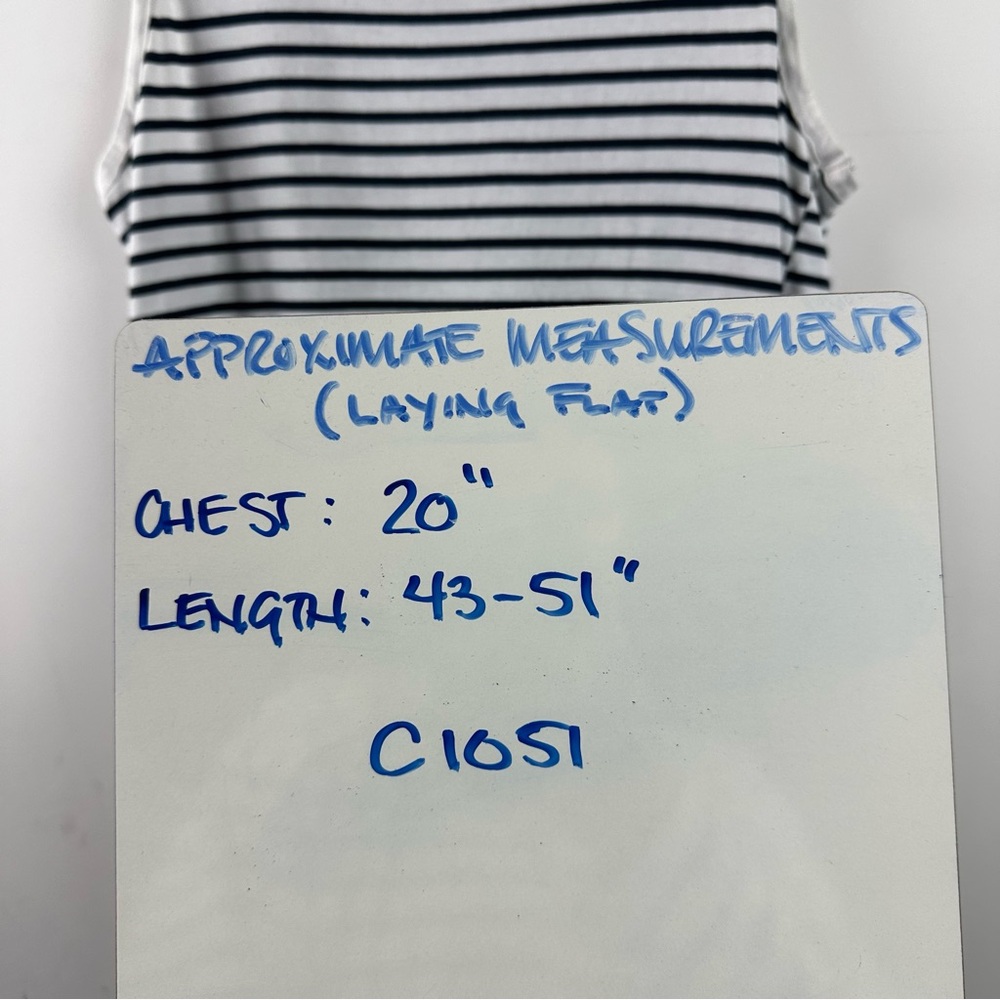 APPROXIMATE MEASUREMENTS
(LAYING FLAT)
CHEST: 20"
LENGTH: 43-51"
C1051